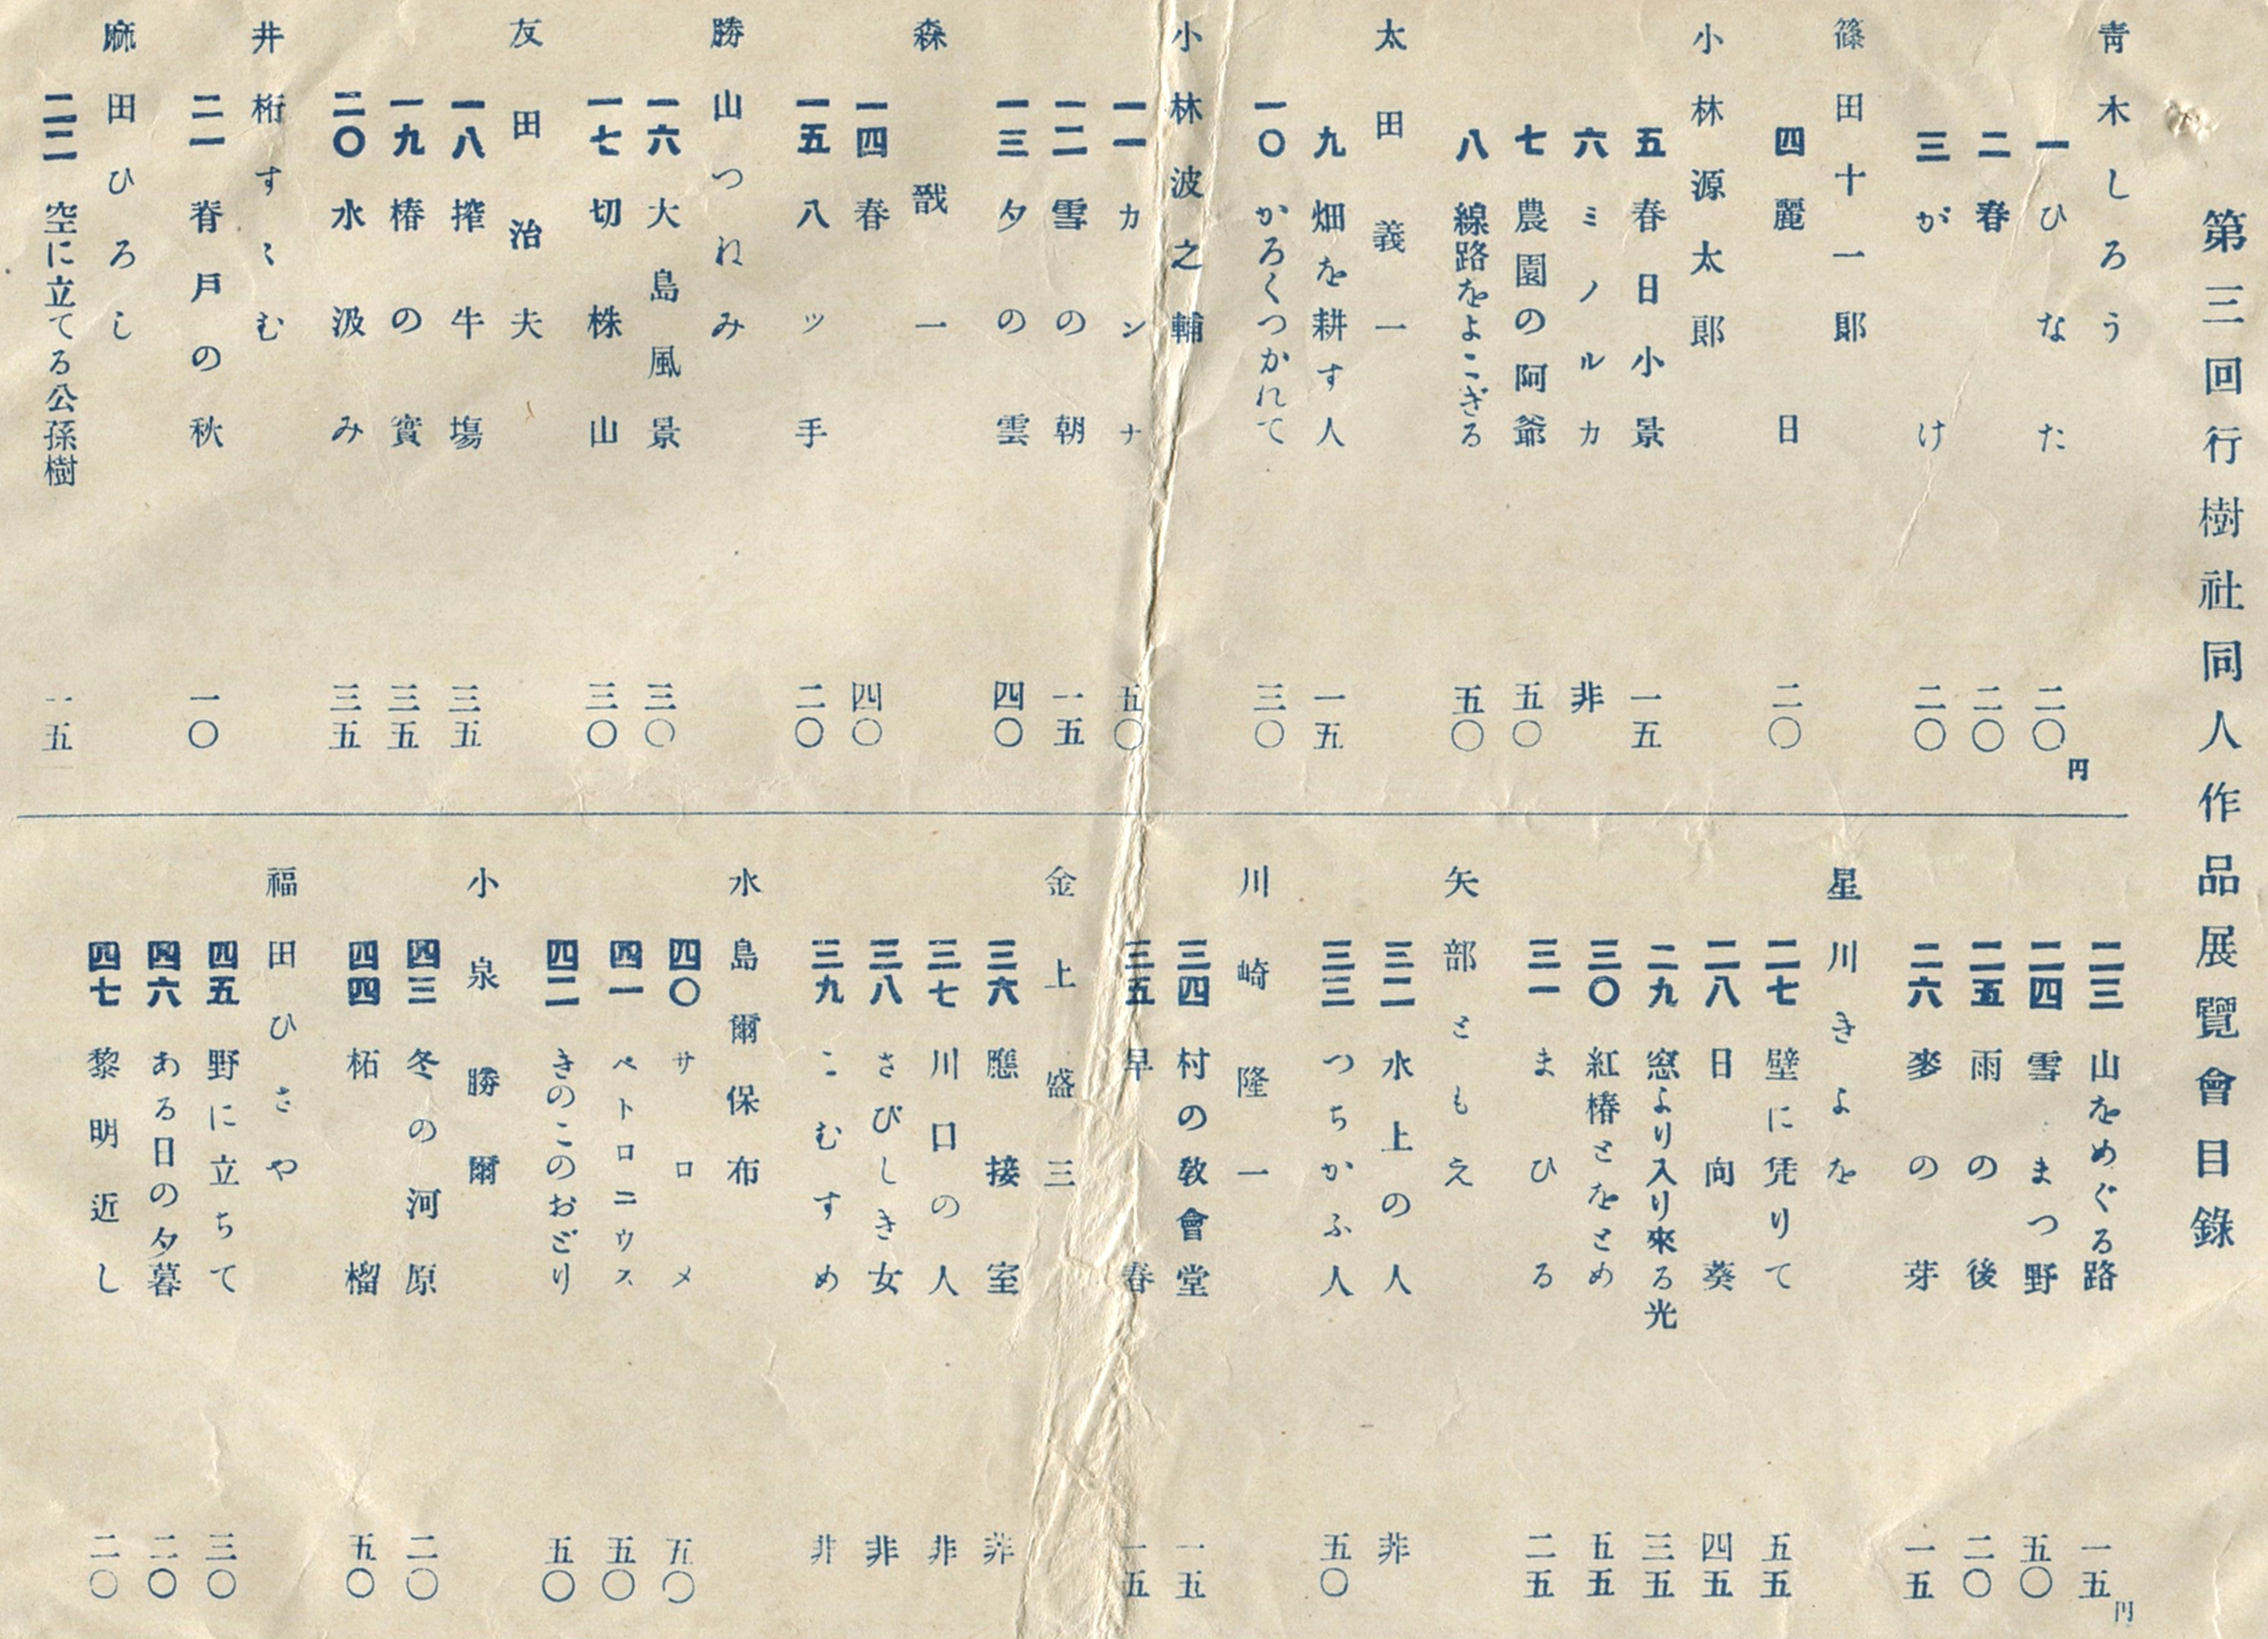 第三回行樹社同人作品展覽會目錄
青木しろう
一 ひなた 二〇円
二 春 二〇
三 がけ 二〇
篠田十一郎
四 麗日 二〇
小林源太郎
五 春日小景 一五
六 ミノルカ 非
七 農園の阿爺 五〇
八 線路をよこぎる 五〇
太田義一
九 畑を耕す人 一五
一〇 かろくつかれて 三〇
小林波之輔
一一 カンナ 五〇
一二 雪の朝 一五
一三 夕の雲 四〇
森戬一
一四 春 四〇
一五 八ッ手 二〇
勝山つねみ
一六 大島風景 三〇
一七 切株山 三〇
友田治夫
一八 搾牛塲 三五
一九 椿の實 三五
二〇 水汲み 三五
井桁すゝむ
二一 脊戸の秋 一〇
麻田ひろし
二二 空に立てる公孫樹 一五
二三 山をめぐる路 一五円
二四 雪まつ野 五〇
二五 雨の後 二〇
二六 麥の芽 一五
星川きよを
二七 壁に凭りて 五五
二八 日向葵 四五
二九 窓より入り來る光 三五
三〇 紅椿とをとめ 五五
三一 まひる 二五
矢部ともえ
三二 水上の人 非
三三 つちかふ人 五〇
川崎隆一
三四 村の敎會堂 一五
三五 早春 一五
金上盛三
三六 應接室 非
三七 川口の人 非
三八 さびしき女 非
三九 こむすめ 非
水島爾保布
四〇 サロメ 五〇
四一 ペトロニウス 五〇
四二 きのこのおどり 五〇
小泉勝爾
四三 冬の河原 二〇
四四 柘榴 五〇
福田ひさや
四五 野に立ちて 三〇
四六 ある日の夕暮 二〇
四七 黎明近し 二〇